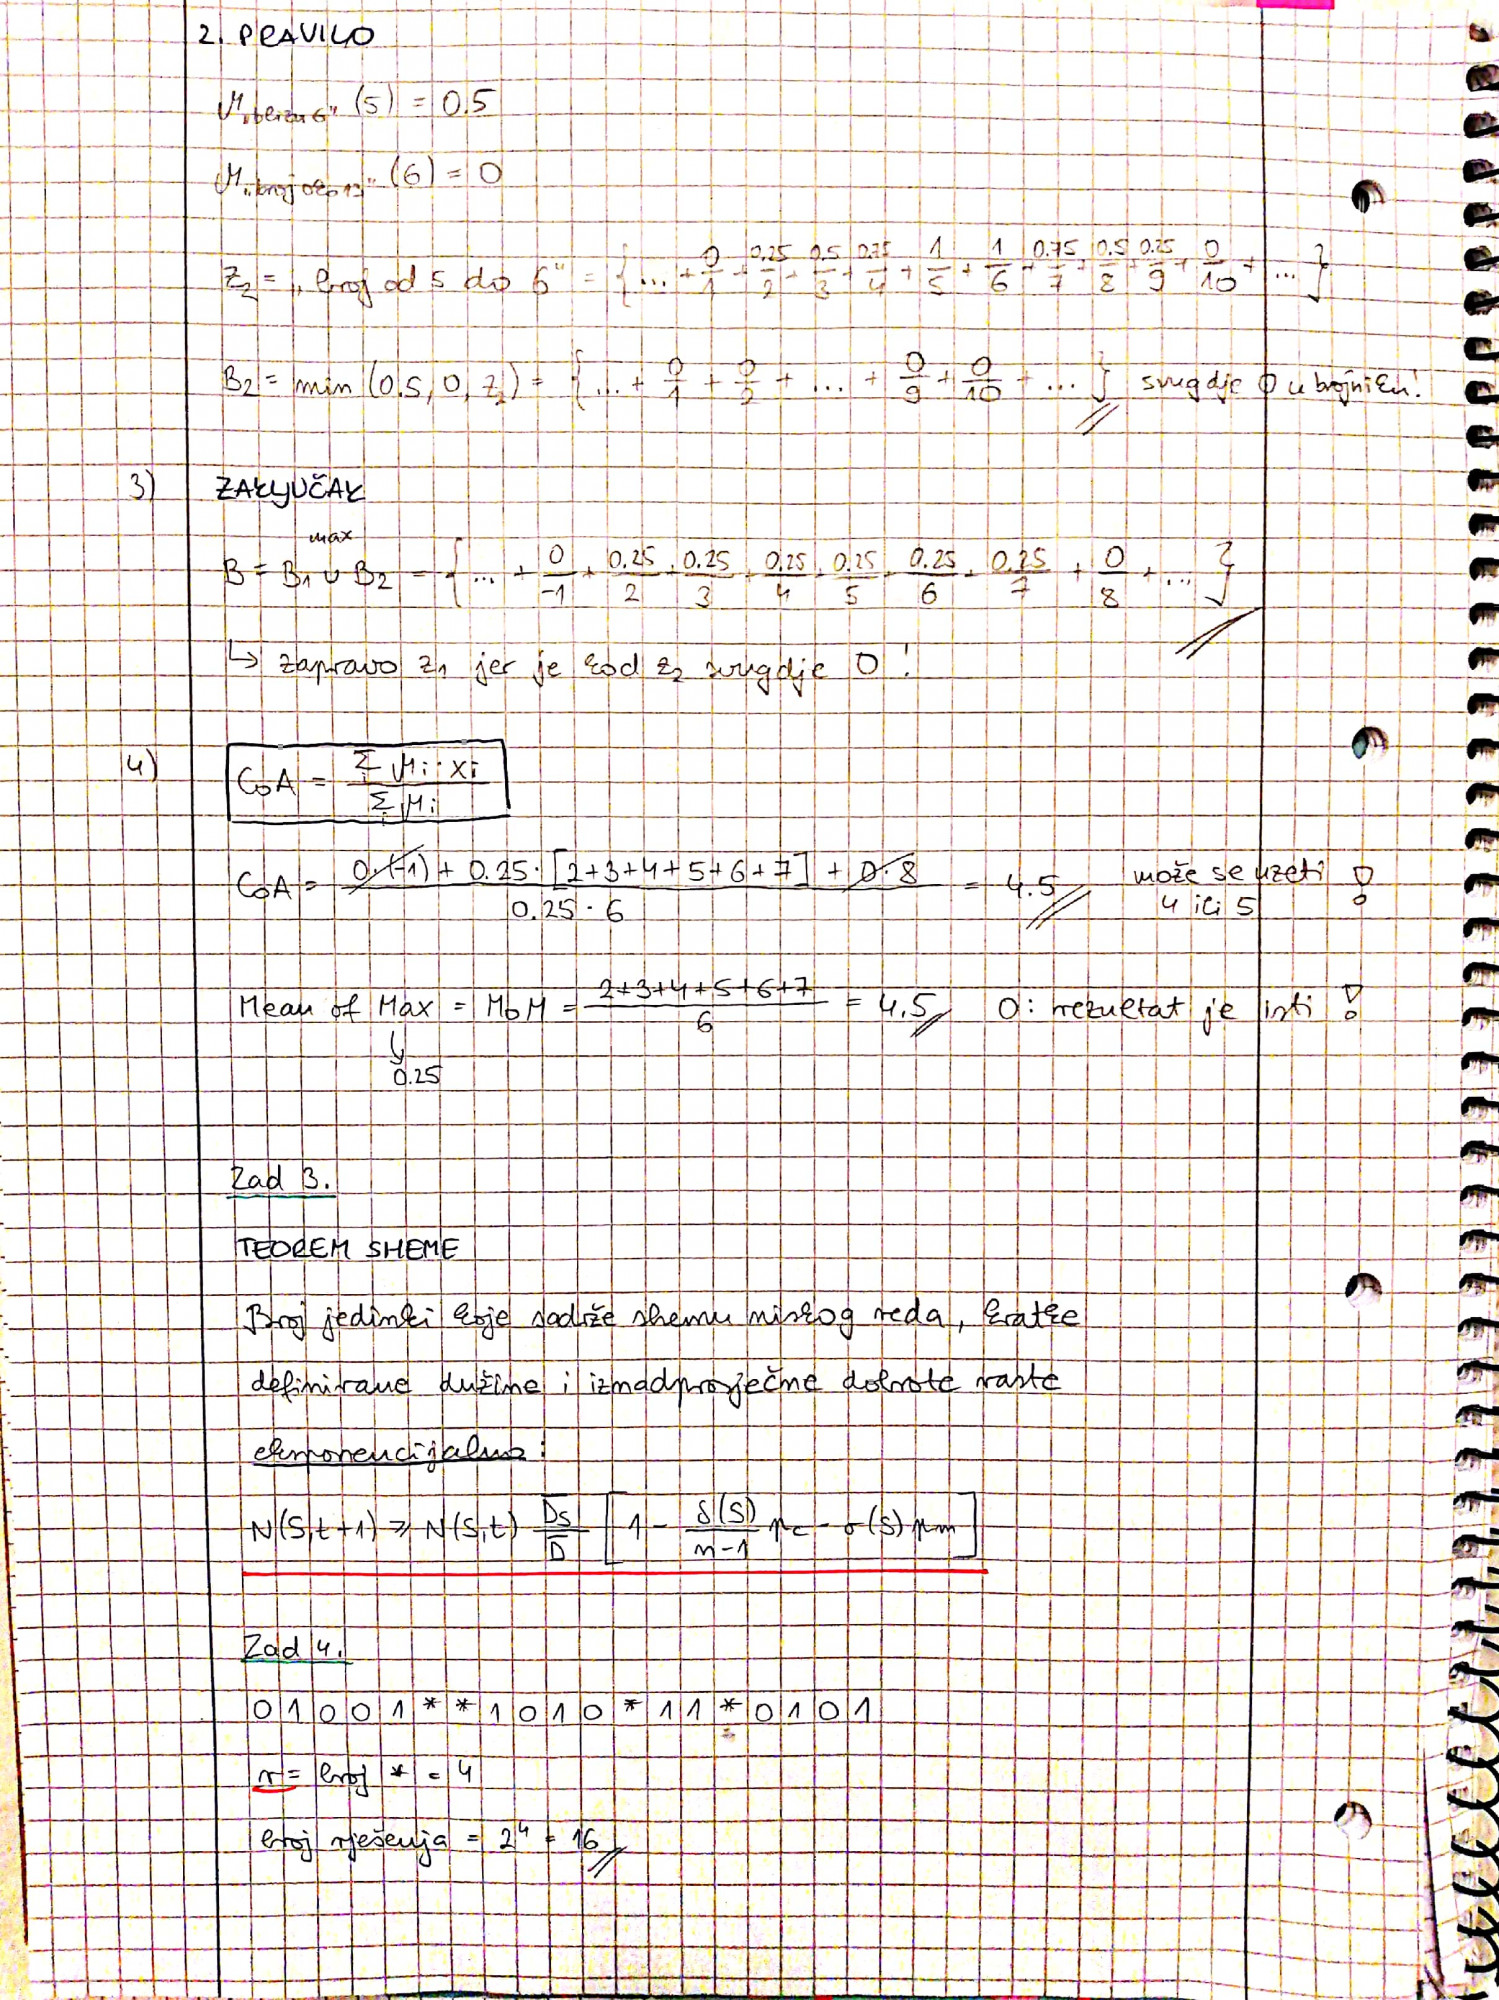 2. PRAVILO
μ„blizu 6" (5) = 0.5
μ„broj oko 13" (6) = 0
Z₂ = „broj od 5 do 6" = { ... + 0/1 + 0.25/2 + 0.5/3 + 0.75/4 + 1/5 + 1/6 + 0.75/7 + 0.5/8 + 0.25/9 + 0/10 + ... }
B₂ = min (0.5, 0, Z₂) = { ... + 0/1 + 0/2 + ... + 0/9 + 0/10 + ... } svugdje 0 u brojniku!
3) ZAKLJUČAK
max
B = B₁ ∪ B₂ = { ... + 0/-1 + 0.25/2 + 0.25/3 + 0.25/4 + 0.25/5 + 0.25/6 + 0.25/7 + 0/8 + ... }
↳ zapravo z₁ jer je kod z₂ svugdje 0 !
4) CoA = Σᵢ μᵢ · xᵢ / Σᵢ μᵢ
CoA = 0·(-1) + 0.25 · [2+3+4+5+6+7] + 0·8 / 0.25 · 6 = 4.5 može se uzeti 4 ili 5 !
Mean of Max = MoM = 2+3+4+5+6+7 / 6 = 4.5 O: rezultat je isti !
↳ 0.25
Zad 3.
TEOREM SHEME
Broj jedinki koje sadrže shemu niskog reda, kratke
definirane dužine i iznadprosječne dobrote raste
eksponencijalno:
N(S,t+1) ≥ N(S,t) D̄s/D̄ [ 1 - δ(S)/n-1 pc - σ(S) pm ]
Zad 4.
0 1 0 0 1 * * 1 0 1 0 * 1 1 * 0 1 0 1
r = broj * = 4
broj rješenja = 2⁴ = 16